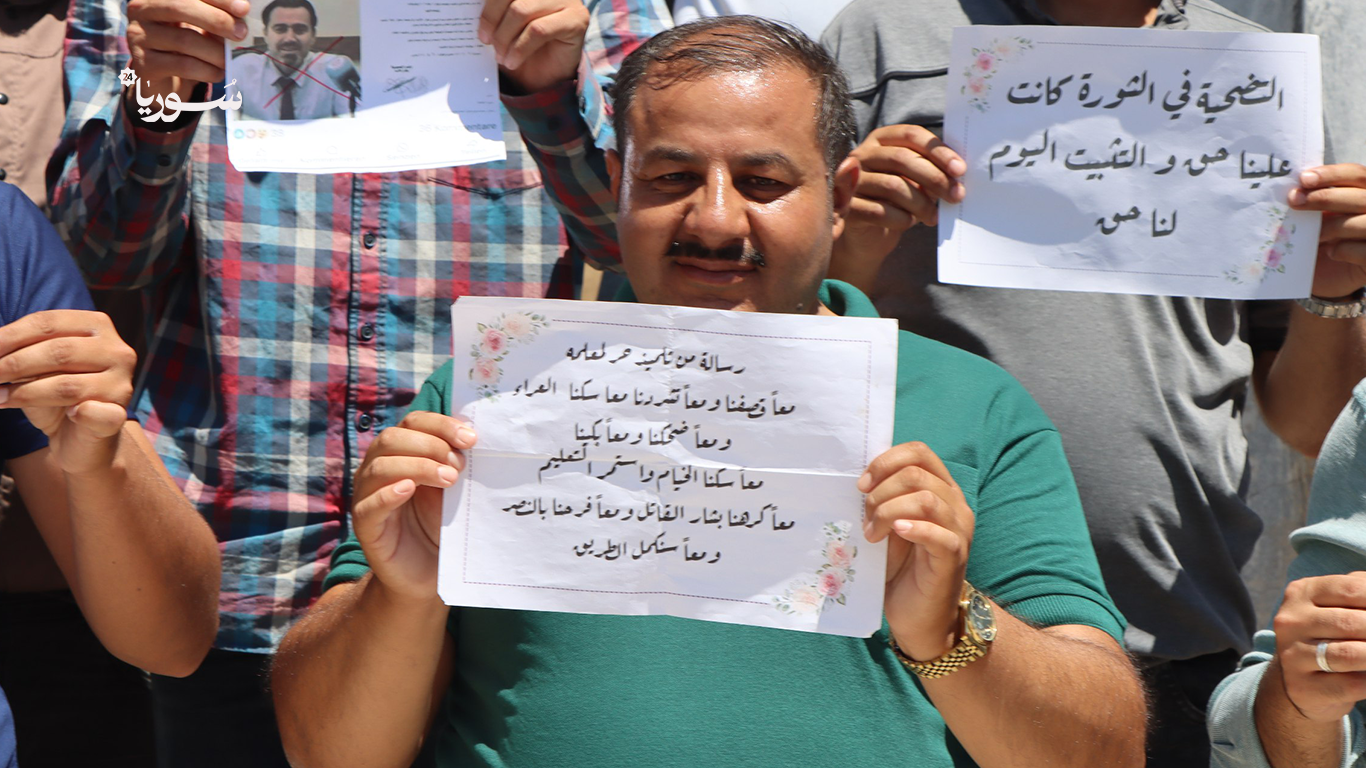 سوريا
24
التضحية في الثورة كانت
علينا حق و التثبيت اليوم
لنا حق
رسالة من تلميذ حر لمعلمه
معاً قصفنا ومعاً تشردنا معا سكنا العراء
ومعاً ضحكنا ومعاً بكينا
معاً سكنا الخيام واستمر التعليم
معاً كرهنا بشار القاتل ومعاً فرحنا بالنصر
ومعاً سنكمل الطريق